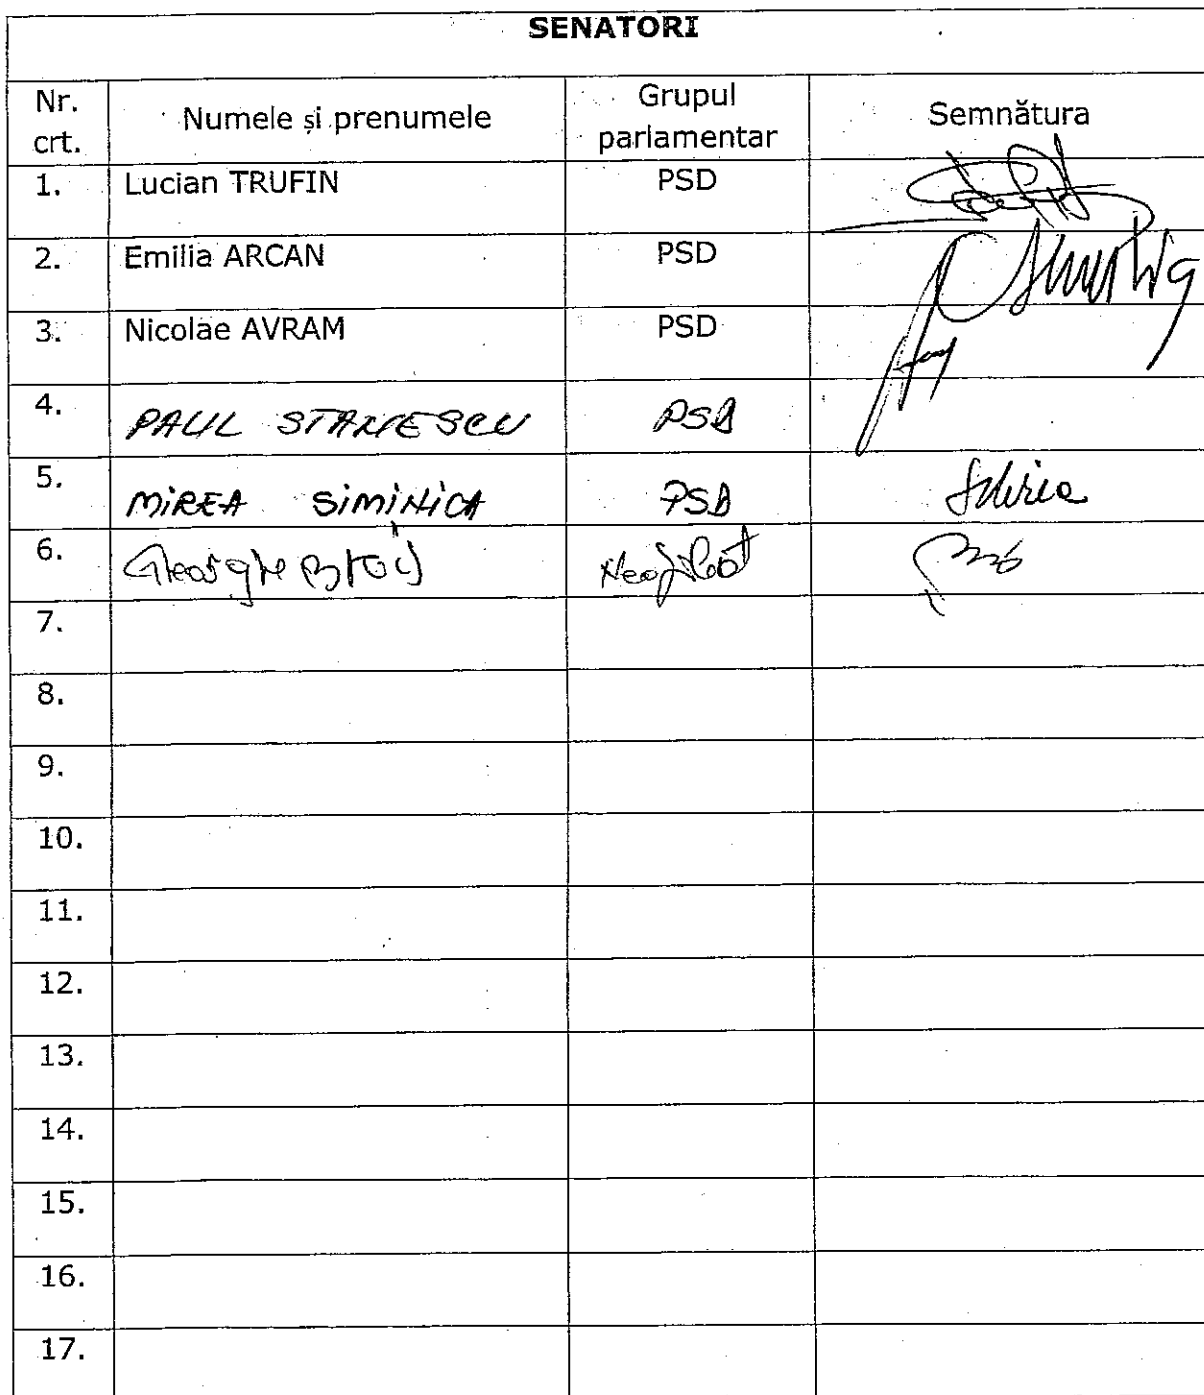 SENATORI
Nr. crt. Numele și prenumele Grupul parlamentar Semnătura
1. Lucian TRUFIN PSD
2. Emilia ARCAN PSD
3. Nicolae AVRAM PSD
4. PAUL STANESCU PSD
5. MIREA SIMINICA PSD
6. Gheorghe
7.
8.
9.
10.
11.
12.
13.
14.
15.
16.
17.